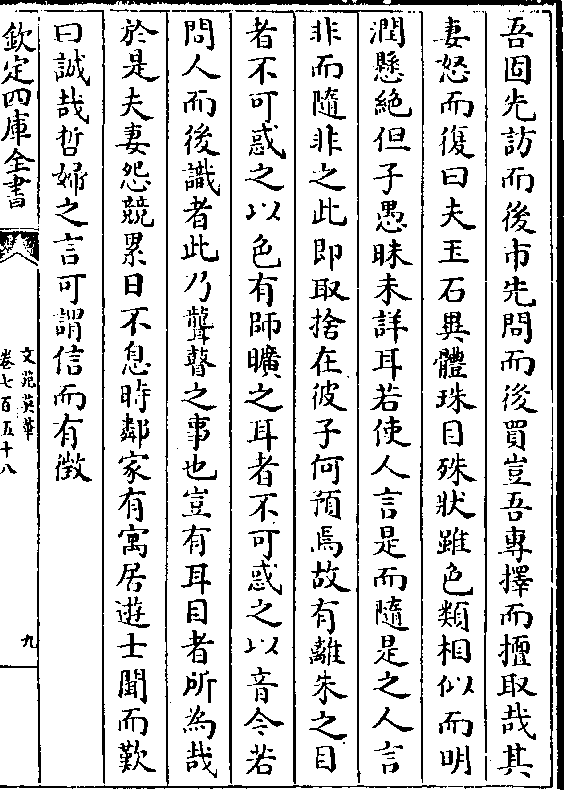 吾固先訪而後市先問而後買豈吾專擇而擅取哉其
妻怒而復曰夫玉石異體珠目殊狀雖色類相似而明
潤懸絶但子愚昧未詳耳若使人言是而隨是之人言
非而隨非之此即取捨在彼子何預焉故有離朱之目
者不可惑之以色有師曠之耳者不可惑之以音今若
問人而後識者此乃聾瞽之事也豈有耳目者所為哉
於是夫妻怨競累日不息時鄰家有寓居遊士聞而歎
曰誠哉哲婦之言可謂信而有徴
欽定四庫全書
文苑英華
卷七百五十八
九